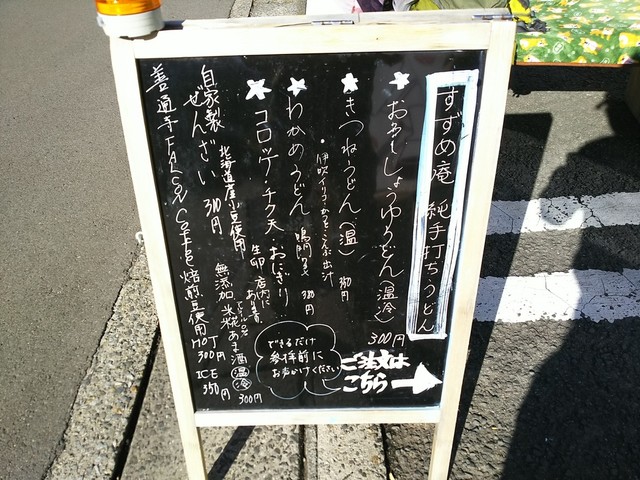 すずめ庵 純手打ち・うどん
おろししょうゆうどん(温冷)
300円
きつねうどん(温)
350円
・伊吹イリコ・かつお・こんぶ出汁
わかめうどん 鳴門産 380円
コロッケ・チク天・おにぎり
生卵 店内にあります。
自家製ぜんざい 310円
北海道産小豆使用
無添加 米糀あま酒 温冷 300円
善通寺 FALCON Coffee 焙煎豆使用 HOT 300円 ICE 350円
できるだけ
参拝前に
お声かけください
ご注文は
こちら→